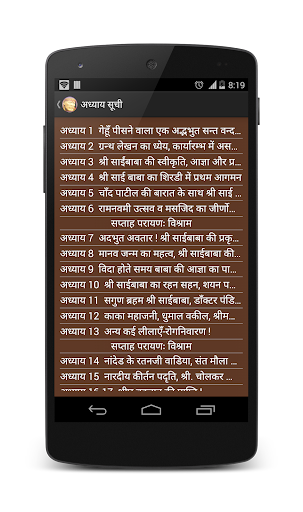 8:19
अध्याय सूची
अध्याय 1 गेहूँ पीसने वाला एक अद्भुत सन्त वन्द...
अध्याय 2 ग्रन्थ लेखन का ध्येय, कार्यारम्भ में अस...
अध्याय 3 श्री साईंबाबा की स्वीकृति, आज्ञा और प्र...
अध्याय 4 श्री साई बाबा का शिरडी में प्रथम आगमन
अध्याय 5 चाँद पाटील की बारात के साथ श्री साई ...
अध्याय 6 रामनवमी उत्सव व मसजिद का जीर्णो...
सप्ताह परायण: विश्राम
अध्याय 7 अदभुत अवतार ! श्री साईबाबा की प्रकृ...
अध्याय 8 मानव जन्म का महत्व, श्री साईबाबा की...
अध्याय 9 विदा होते समय बाबा की आज्ञा का पा...
अध्याय 10 श्री साईबाबा का रहन सहन, शयन प...
अध्याय 11 सगुण ब्रहम श्री साईबाबा, डॉक्टर पंडि...
अध्याय 12 काका महाजनी, धुमाल वकील, श्रीम...
अध्याय 13 अन्य कई लीलाएँ-रोगनिवारण !
सप्ताह परायण: विश्राम
अध्याय 14 नांदेड के रतनजी वाडिया, संत मौला ...
अध्याय 15 नारदीय कीर्तन पदृति, श्री. चोलकर ...